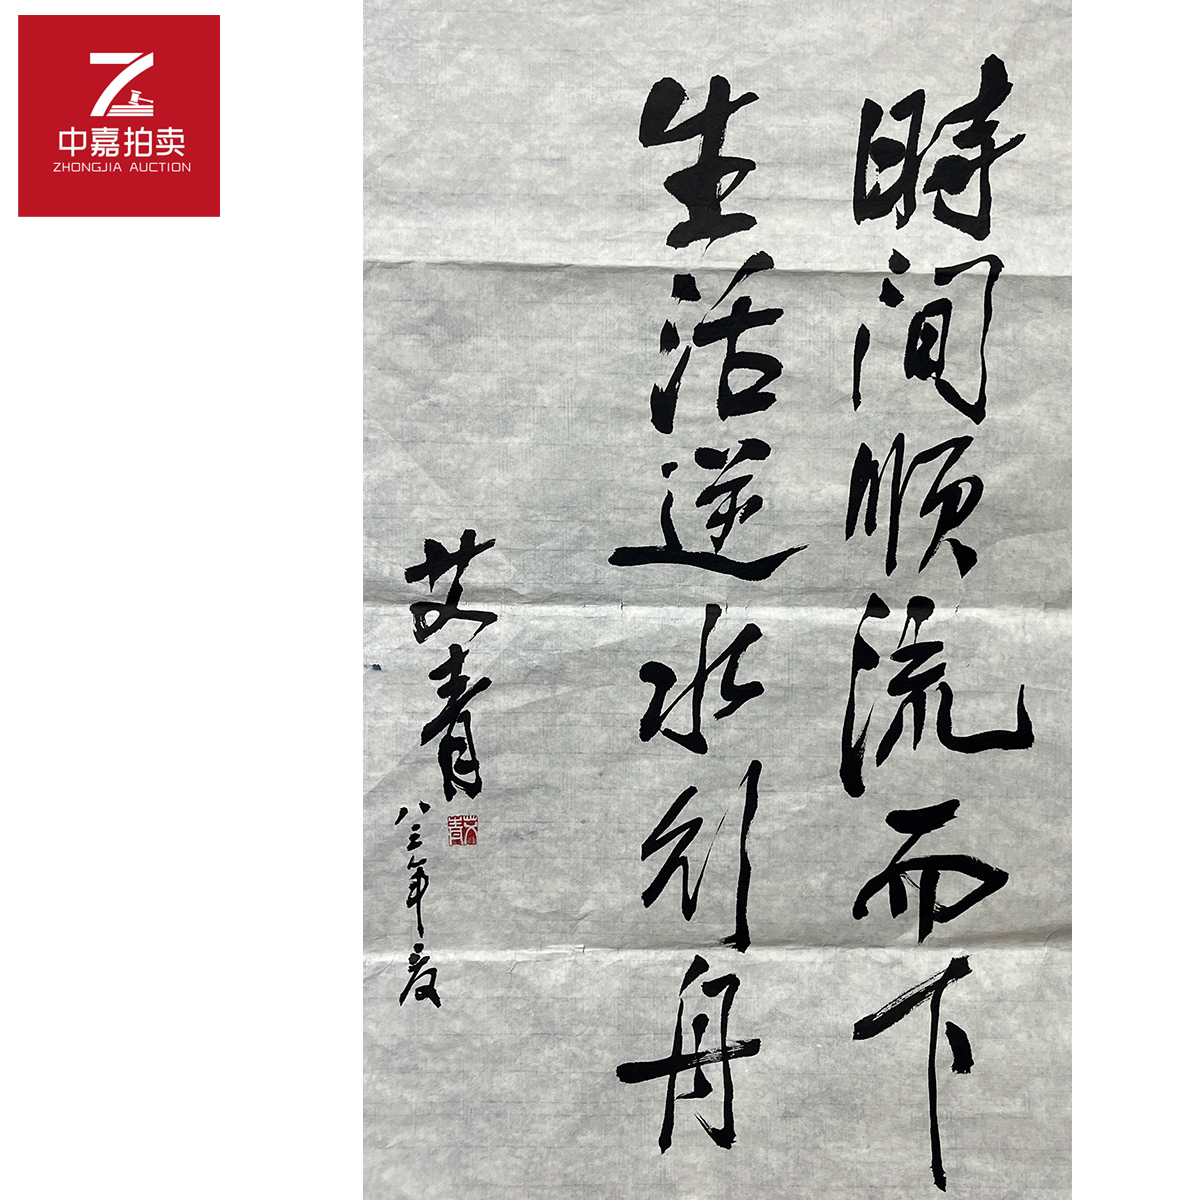 中嘉拍卖
ZHONGJIA AUCTION
時间顺流而下
生活逆水行舟
艾青
八三年夏
艾青